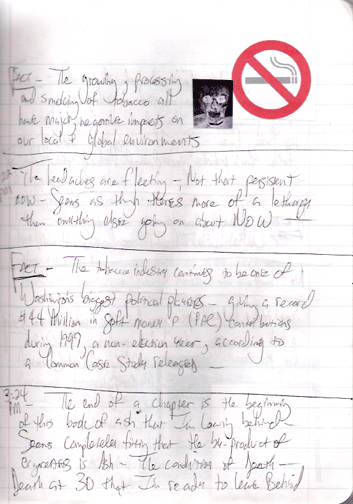 FACT - The growing, processing
and smoking of tobacco all
have major, negative impacts on
our local & global environments
The headaches are fleeting -, Not that persistent
now - Seems as though theres more of a lethargy
then anything else going on about NOW -
FACT - The tobacco industry continues to be one of
Washington's biggest political players - giving a record
$4.4 Million in Soft money & (PAC) Contributions
during 1997, a non-election year, according to
a Common Cause Study released -
3:24
PM - The end of a chapter is the beginning
of this body of ash that I'm leaving behind -
Seems completely fitting that the by-Product of
is Ash - The Condition of Death -
Death at 30 that I'm ready to leave Behind